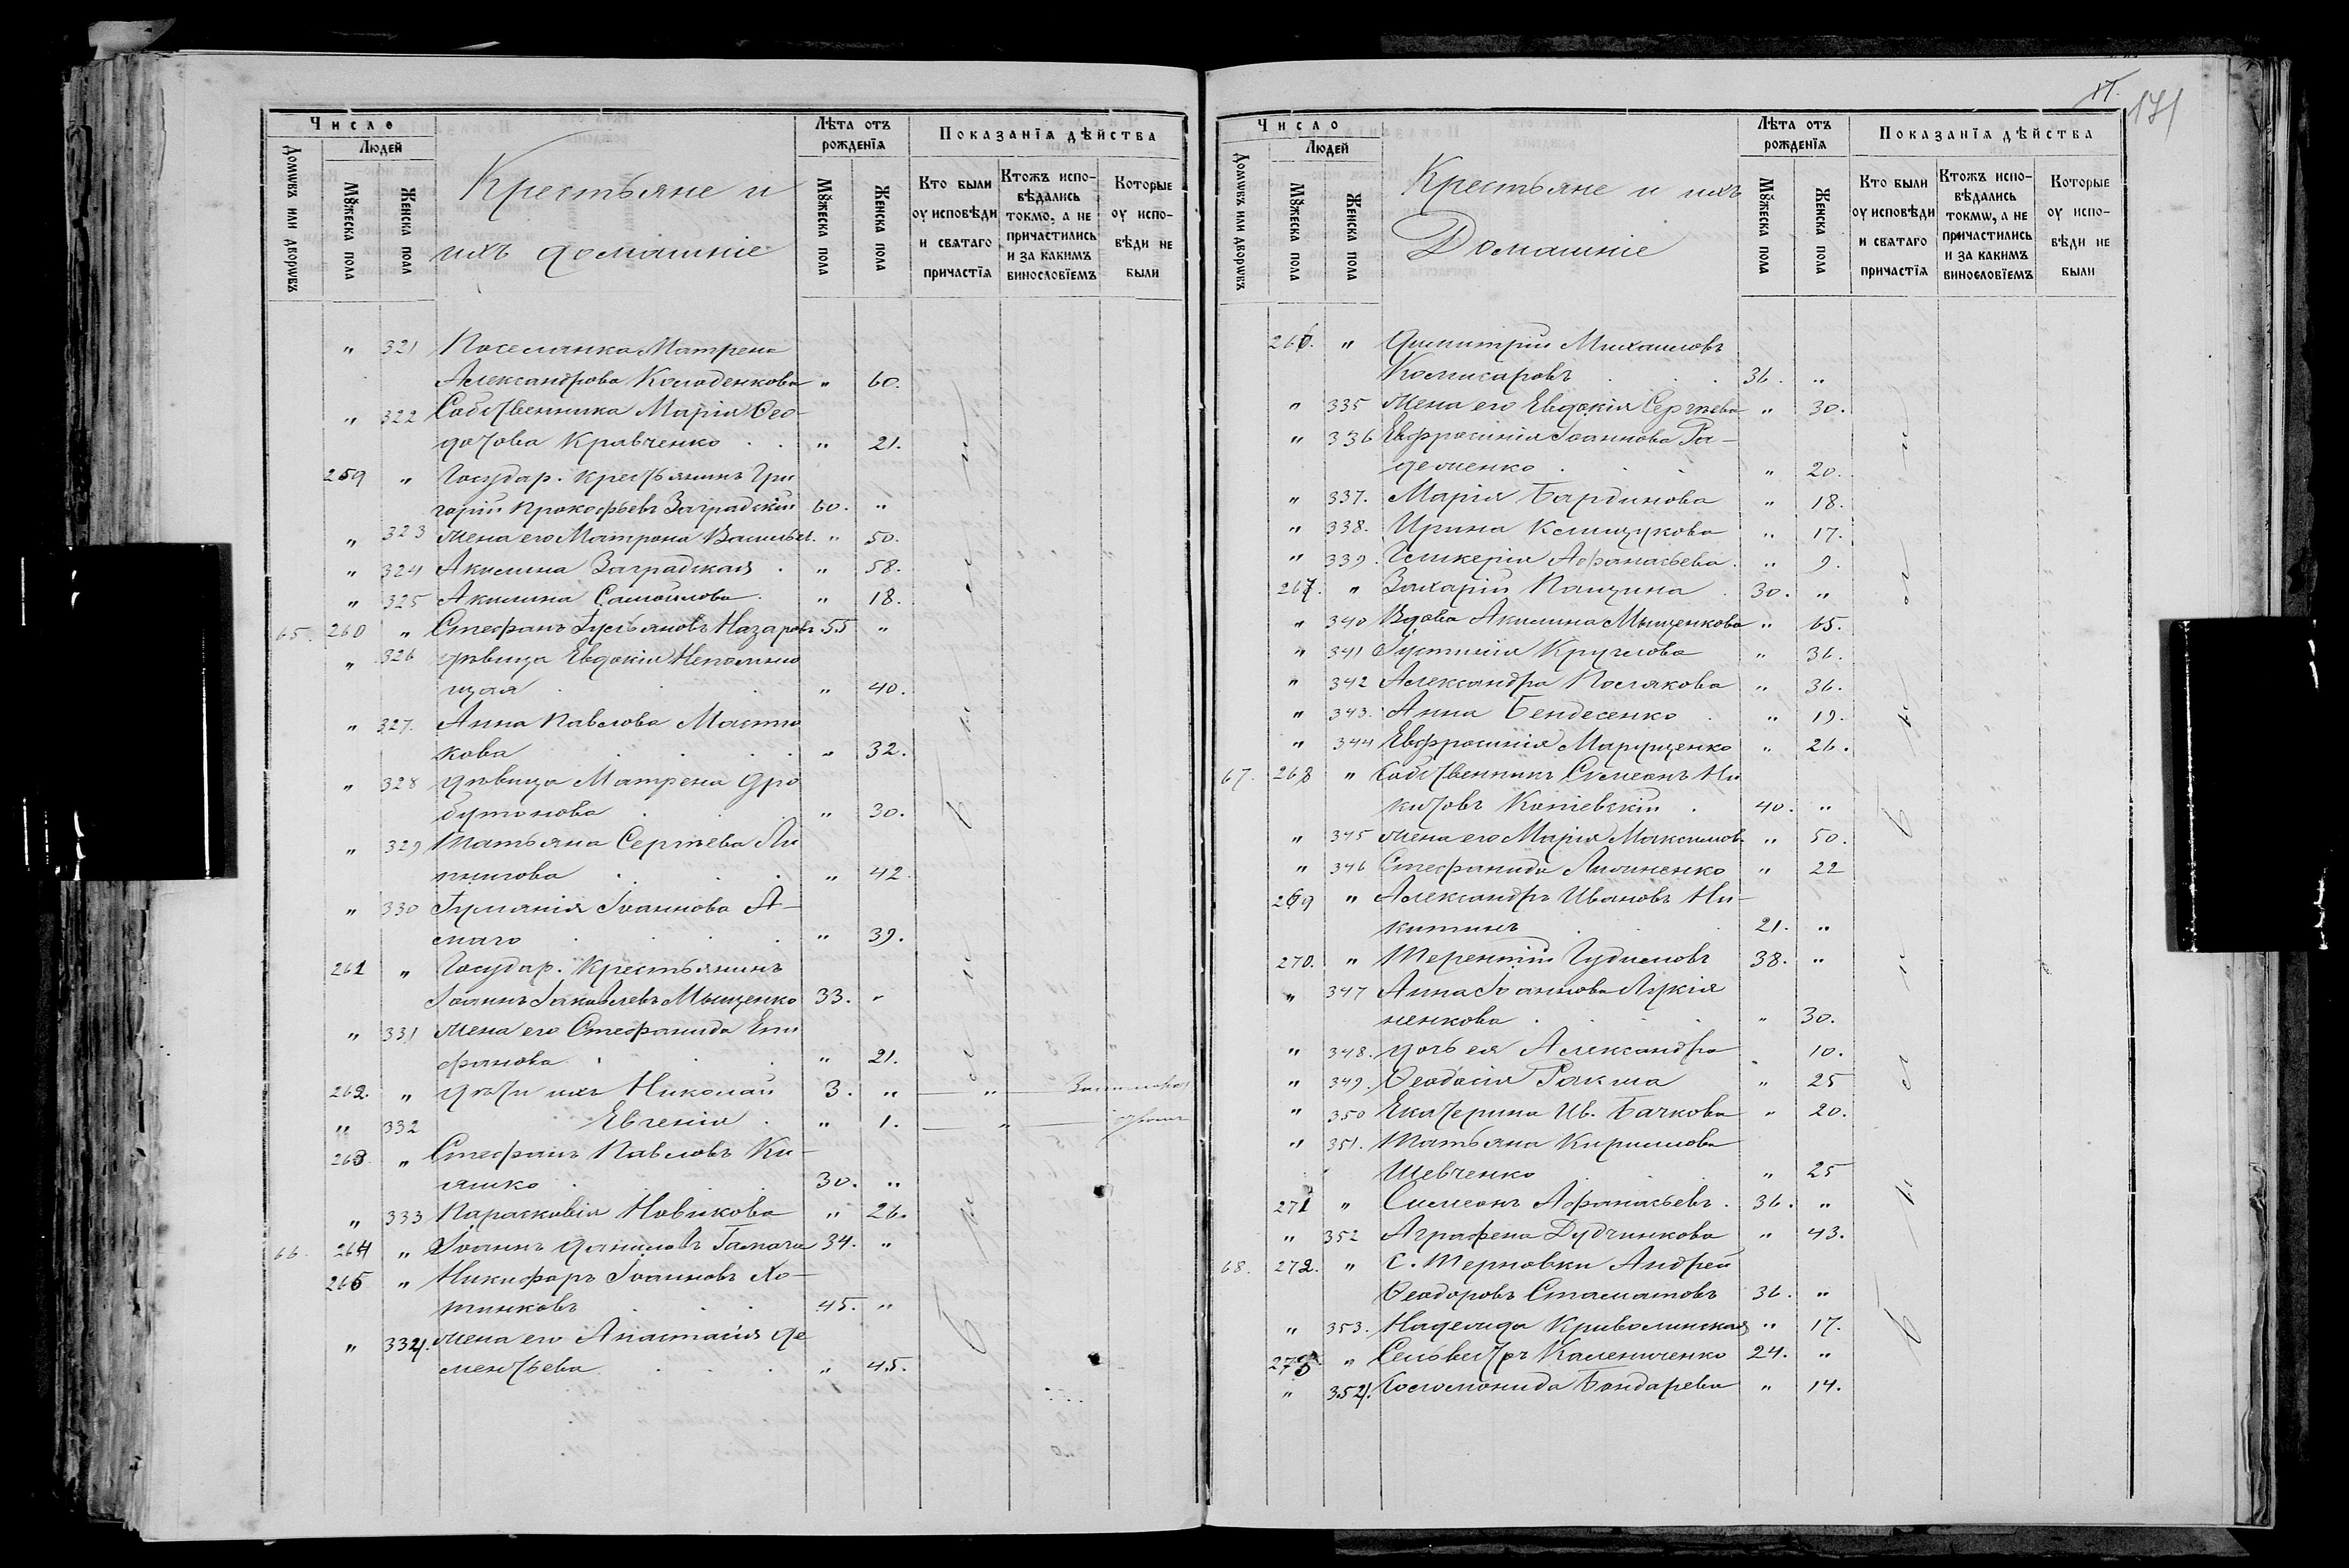 Число
Людей
Домѡвъ или дворѡвъ
Мꙋжеска пола
Женска пола
Крестьяне и
ихъ домашніе
Лѣта отъ рожденїѧ
Мꙋжеска пола
Женска пола
Показанїѧ дѣйства
Кто были оу исповѣди и свѧтаго причастїѧ
Ктожъ исповѣдались токмо, а не причастились и за какимъ винословїемъ
Которые оу исповѣди не были
" 321 Поселянка Матрена
Александрова Колоденкова " 60.
" 322 Собственника Марія Ѳео-
дотова Кравченко " 21.
259 " Государ. крестьянинъ Гри
горій Прокофьевъ Заградскій 60. "
" 323 жена его Матрона Васильев. " 50.
" 324 Акилина Заградская " 58.
" 325 Акилина Самойлова " 18.
65. 260 " Стефанъ Назаровъ 55 "
" 326 дѣвица Евдокія Непомню
щая " 40.
" 327. Анна Павлова Мастю
кова " 32.
" 328 дѣвица Матрена Дро
ботова " 30.
" 329 Татьяна Сергѣева
" 42.
" 330 Іуліанія Іоаннова
" 39.
261 " Государ. Крестьянинъ
Іоаннъ Іаковлевъ Мыщенко 33. "
" 331 жена его Стефанида Епи
фанова " 21.
262. " дѣти ихъ Николай 3. " "
" 332 Евгенія " 1. "
263 " Стефанъ Павловъ Ки-
яшко 30. "
" 333 Параскевія Новикова " 26.
66. 264 " Іоаннъ Даниловъ 34. "
265 " Никифоръ Іоанновъ Хо-
тинковъ 45. "
" 334. жена его Анастасія Де
ментьева " 45.
17.
171
Число
Людей
Домѡвъ или дворѡвъ
Мꙋжеска пола
Женска пола
Крестьяне и ихъ
Домашніе
Лѣта отъ рожденїѧ
Мꙋжеска пола
Женска пола
Показанїѧ дѣйства
Кто были оу исповѣди и свѧтаго причастїѧ
Ктожъ исповѣдались токмѡ, а не причастились и за какимъ винословїемъ
Которые оу исповѣди не были
266. " Димитрій Михаиловъ
Комисаровъ 36. "
" 335 жена его Евдокія Сергѣева " 30.
" 336 Евфросинія Іоаннова Ра-
" 20.
" 337. Марія Бардинова " 18.
" 338. Ирина Клищукова " 17.
" 339. Гликерія Афанасьева " 9.
267. " Захарій Панщина 30. "
" 340 Вдова Акилина Мыщенкова " 65.
" 341 Іустинія Круглова " 36.
" 342 Александра Полякова " 36.
" 343. Анна Бендесенко " 19.
" 344 Евфросинія Марущенко " 26.
67. 268 " Собственникъ Симеонъ Ни
китовъ Копіевскій 40. "
" 345 жена его Марія Максимов. " 50.
" 346 Стефанида " 22
269 " Александръ Ивановъ Ни-
китинъ 21. "
270. " Терентій Гудимовъ 38. "
" 347 Анна Іоаннова Лукія
ненкова " 30.
" 348. дочь ея Александра 10.
" 349. Ѳеодосія Ракша " 25
" 350 Екатерина Ив. Бачкова " 20.
" 351. Татьяна Кириллова
Шевченко " 25
271 " Симеонъ Афанасьевъ 36. "
" 352 Аграфена Дудчинкова " 43.
68. 272. " С. Терновки Андрей
Ѳеодоровъ Стаматовъ 36. "
" 353. Надежда Криволинская " 17.
273. " Сильвестръ Калениченко 24. "
" 354. Соломонида Бондарева " 14.